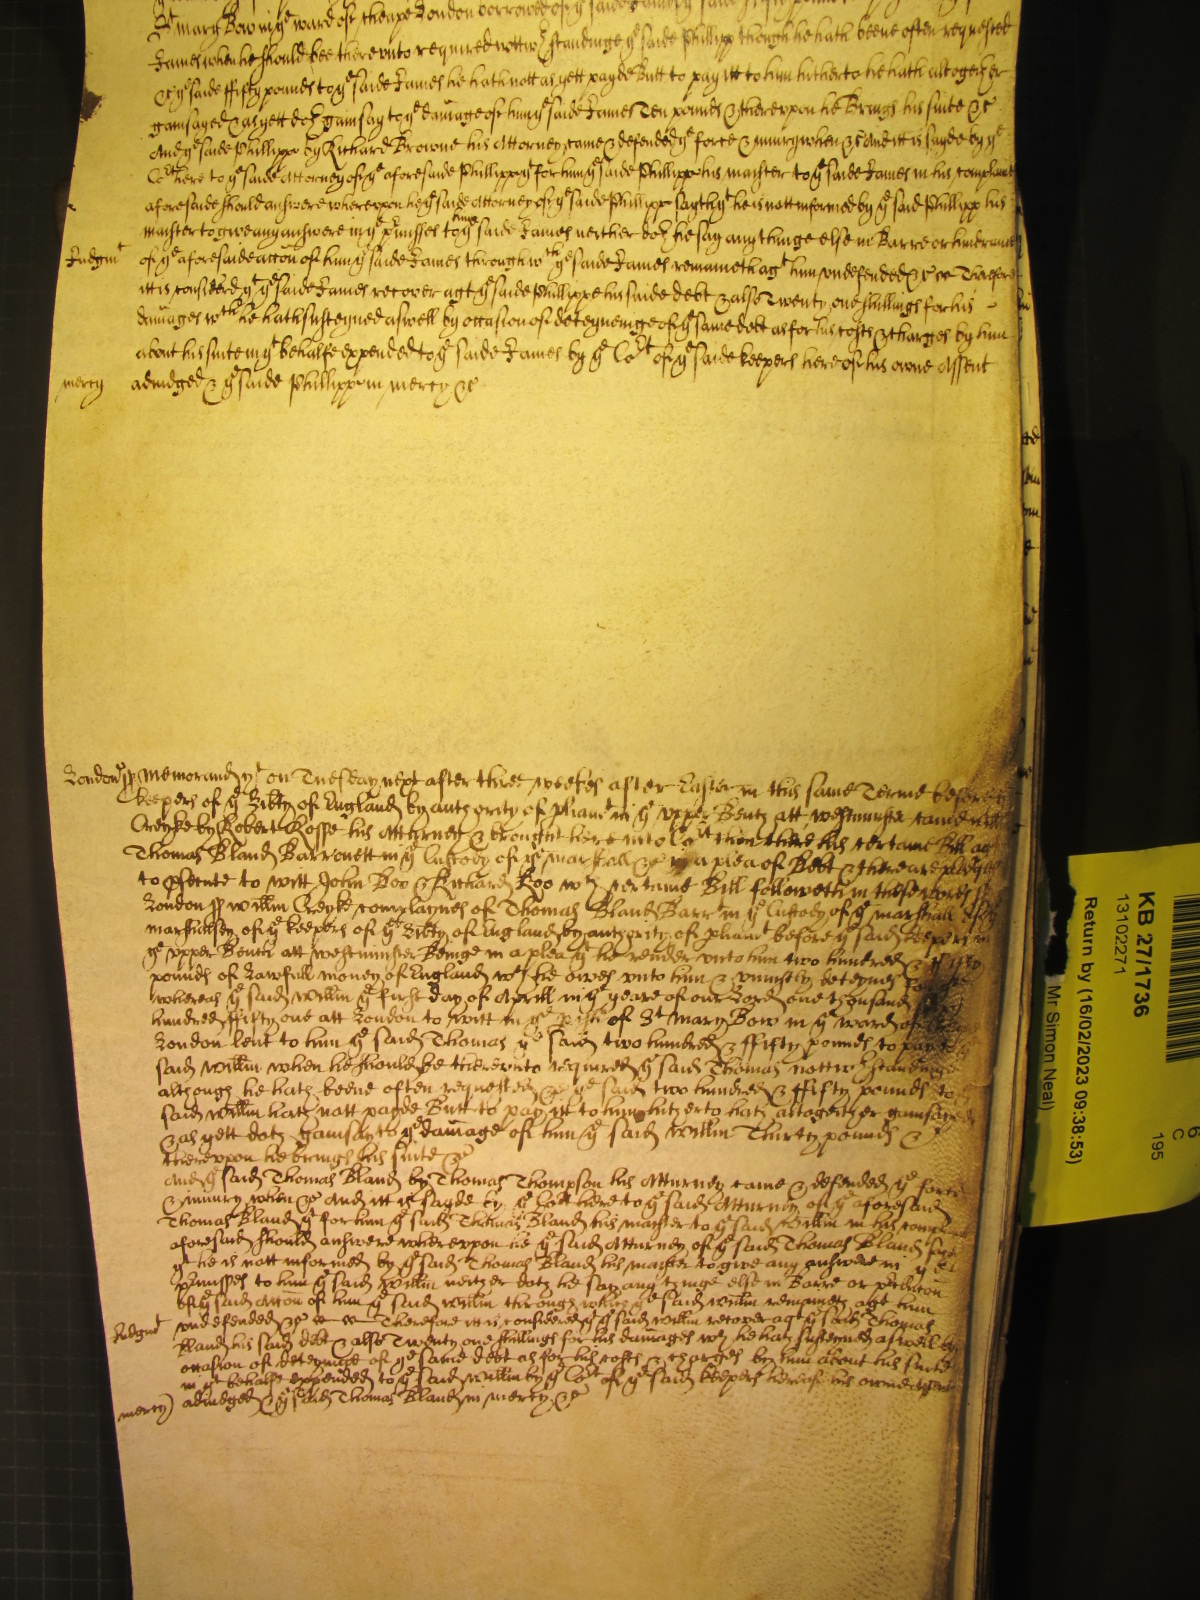 St Mary Bow in ye ward of Cheape London borrowed of ye saide James ye saide fifty pounds
James when he should bee there vnto required nottwthstandinge ye saide Phillipp though he hath beene often requested
&c ye saide ffifty pounds to ye saide James he hath nott as yett payde Butt to pay itt to him hitherto he hath altogether
gainsayed & as yett doth gainsay to ye damage of him ye saide James Ten pounds & therevpon he Brings his suite &c
And ye saide Phillipp by Richard Browne his Attorney came & defended ye force & iniury when &c And itt is sayde by ye
Cort here to ye saide Attorney of ye aforesaide Phillipp yt for him ye saide Phillipp his master to ye saide James in his complaint
aforesaide should answere wherevpon he ye saide Attorney of ye saide Phillipp sayth yt he is nott informed by ye said Phillipp his
master to give any answere in ye pmisses to him ye saide James neither doth he say any thinge else in Barre or hindrance
Judgmt of ye aforesaide accon of him ye saide James through wch ye saide James remaineth agt him vndefended &c Therefore
itt is considered yt ye saide James recover agt ye saide Phillippe his saide debt & alsoe Twenty one shillings for his
damages wch he hath susteyned aswell by occasion of deteyneinge of ye same debt as for his costs & charges by him
about his suite in yt behalfe expended to ye saide James by ye Cort of ye saide keepers here of his owne Assent
mercy adiudged & ye saide Phillipp in mercy &c
London ss Memorand yt on Tuesday next after three weekes after Easter in this same Terme before ye
keepers of ye libty of England by authority of pliamt in ye vpper Bench att westminster came Willm
Creyke by Robert Rosse his Atturney & brought here into Cort then there his certaine Bill agt
Thomas Bland Barronett in ye Custody of ye marshall &c in a plea of Debt & there are pledges
to psecute to witt John Doo & Richard Roo wch certaine Bill followeth in these words ss
London ss Willm Creyke complaynes of Thomas Bland Barrt in ye Custody of ye marshall of ye
marshallsey of ye keepers of ye libty of England by authority of pliamt before ye said keepers in
ye vpper Bench att westminster Beinge in a plea yt he render vnto him two hundred & fifty
pounds of lawfull money of England wch he owes vnto him & vniustly deteynes For yt
whereas ye said Willm ye first day of Aprill in ye yeare of our Lord one thousand
hundred ffifty one att London to witt in ye pish of St Mary Bow in ye ward of
London lent to him ye said Thomas ye said two hundred & ffifty pounds to
said Willm when he should be therevnto required ye said Thomas nottwthstandinge
although he hath beene often requested &c ye said two hundred & ffifty pounds to ye
said Willm hath nott payde Butt to pay itt to him hitherto hath altogether gainsayd
& as yett doth gainsay to ye damage of him ye said Willm Thirty pounds &
therevpon he brings his suite &c
And ye said Thomas Bland by Thomas Thompson his Atturney came & defended ye force
& iniury when &c And itt is sayde by ye Cort here to ye said Atturney of ye aforesaid
Thomas Bland yt for him ye said Thomas Bland his master to ye said Willm in his complt
aforesaid should answere wherevpon he ye said Atturney of ye said Thomas Bland sayth
yt he is nott informed by ye said Thomas Bland his master to give any answere in ye
pmisses to him ye said Willm neither doth he say any thinge else in Barre or
of ye said Accon of him ye said Willm through which ye said Willm remaineth agt him
Judgmt vndefended &c Therefore itt is considered yt ye said Willm recover agt ye said Thomas
Bland his said debt & alsoe Twenty one shillings for his damages wch he hath susteyned aswell by
occasion of deteyninge of ye same debt as for his costs & charges by him about his suite
in yt behalfe expended to ye said Willm by ye Cort of ye said keepers here of his owne Assent
mercy adiudged & ye said Thomas Bland in mercy &c
KB 27/1736
13102271
Return by (16/02/2023 09:38:53)
Mr Simon Neal)
6
C
195